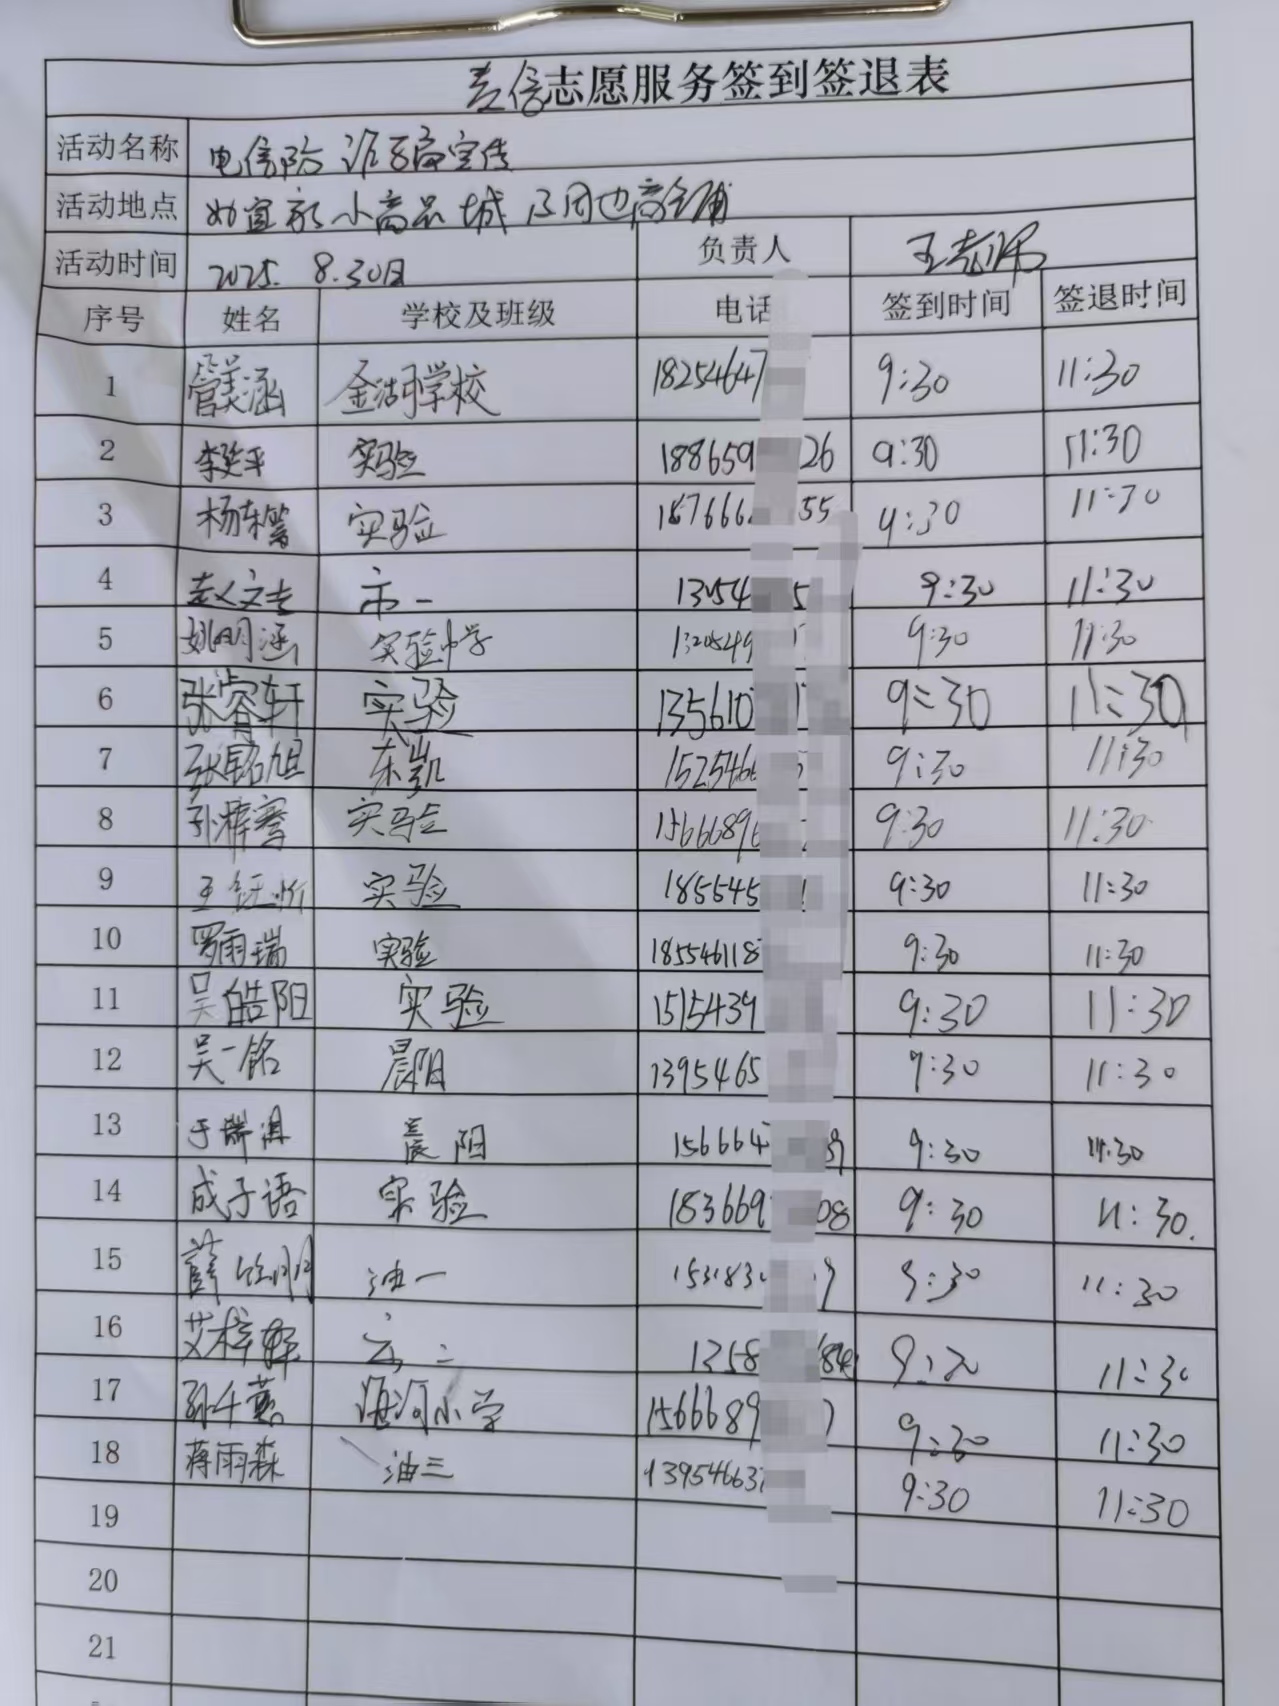 志愿服务签到签退表
活动名称 电信防诈骗宣传
活动地点 如宜家小商品城及周边商铺
活动时间 2025. 8.30日 负责人 王老师
序号 姓名 学校及班级 电话 签到时间 签退时间
1 管美涵 金湖学校 18254647 9:30 11:30
2 李延平 实验 188659 26 9:30 11:30
3 实验 187666 55 9:30 11:30
4 赵文志 市一 13054 5 9:30 11:30
5 姚明涵 实验中学 1320549 9:30 11:30
6 张睿轩 实验 135610 9:30 11:30
7 张铭旭 东凯 1525466 9:30 11:30
8 实验 15666896 9:30 11:30
9 王钰忻 实验 185545 9:30 11:30
10 罗雨瑞 实验 185546118 9:30 11:30
11 吴皓阳 实验 1515439 9:30 11:30
12 吴一铭 晨阳 1395465 9:30 11:30
13 于瑞淇 晨阳 156664 9:30 11:30
14 成子语 实验 183669 08 9:30 11:30.
15 油一 153183 9 9:30 11:30
16 艾梓轩 1358 684 9:30 11:30
17 孙千慧 海河小学 1566689 7 9:30 11:30
18 蒋雨森 油三 139546637 9:30 11:30
19
20
21